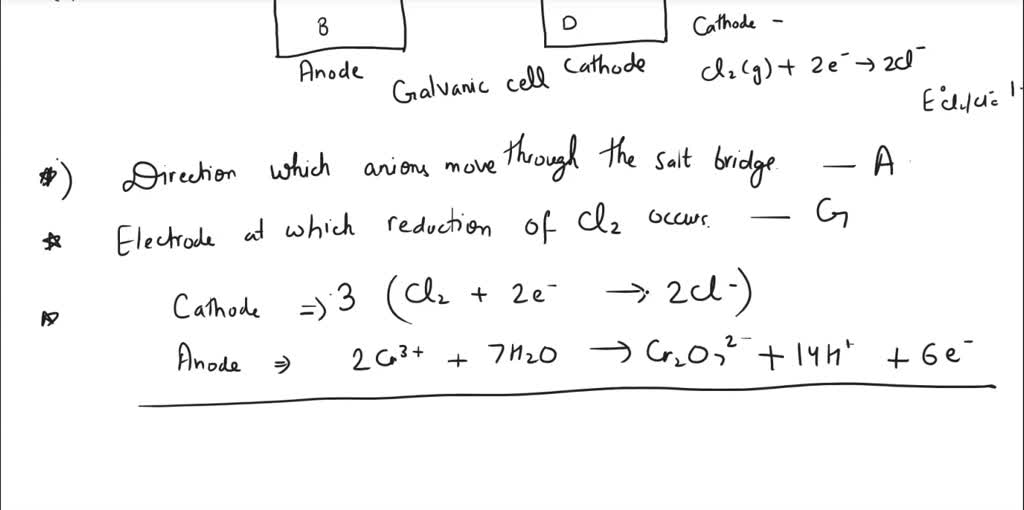 B
D
Cathode -
Anode
Galvanic cell
Cathode
Cl₂(g) + 2e⁻ → 2Cl⁻
E°Cl₂/Cl⁻ = 1
*) Direction which anions move through the salt bridge — A
* Electrode at which reduction of Cl₂ occurs. — G
Cathode ⇒ 3 (Cl₂ + 2e⁻ → 2Cl⁻)
Anode ⇒ 2Cr³⁺ + 7H₂O → Cr₂O₇²⁻ + 14H⁺ + 6e⁻